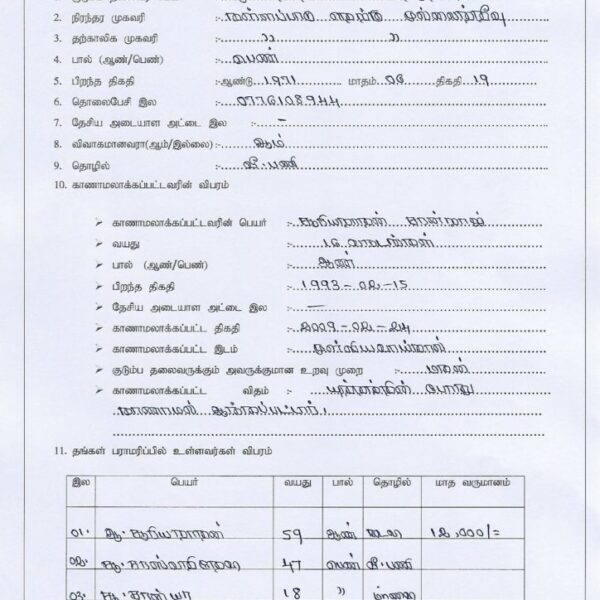 2. நிரந்தர முகவரி :-
3. தற்காலிக முகவரி :- ,, ,,
4. பால் (ஆண்/பெண்) :- பெண்
5. பிறந்த திகதி :-ஆண்டு 1971 மாதம் 06 திகதி 19
6. தொலைபேசி இல :- 0776108944
7. தேசிய அடையாள அட்டை இல :- –
8. விவாகமானவரா(ஆம்/இல்லை) :- ஆம்
9. தொழில் :- வீ.பணி
10. காணாமலாக்கப்பட்டவரின் விபரம்
➢ காணாமலாக்கப்பட்டவரின் பெயர் :- சூரியநாதன்
➢ வயது :- 16 வயது
➢ பால் (ஆண்/பெண்) :- ஆண்
➢ பிறந்த திகதி :- 1993-02-15
➢ தேசிய அடையாள அட்டை இல :- –
➢ காணாமலாக்கப்பட்ட திகதி :- 2009-02-24
➢ காணாமலாக்கப்பட்ட இடம் :-
➢ குடும்ப தலைவருக்கும் அவருக்குமான உறவு முறை :- மகன்
➢ காணாமலாக்கப்பட்ட விதம் :- யுத்தத்தின் போது
காணாமல் ஆக்கப்பட்டார்.
11. தங்கள் பராமரிப்பில் உள்ளவர்கள் விபரம்
இல பெயர் வயது பால் தொழில் மாத வருமானம்
01. ஆ. சூரியநாதன் 59 ஆண் கூலி 12,000/=
02. சூ. 47 பெண் வீ.பணி
03. சூ. 18 ,,